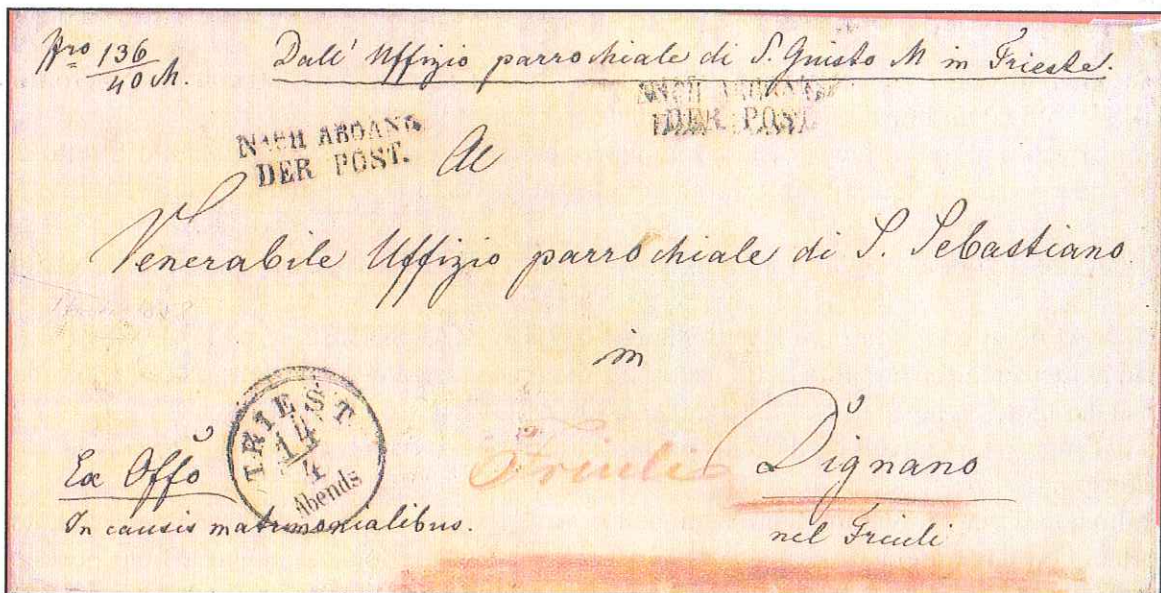 Nro 136/40 M. Dall' Uffizio parrochiale di S. Giusto M in Trieste.
NACH ABGANG
DER POST.
NACH ABGANG
DER POST.
Al
Venerabile Uffizio parrochiale di S. Sebastiano
in
TRIEST
14/4
Abends
Friuli Dignano
Ex Offo
In causis matrimonialibus.
nel Friuli